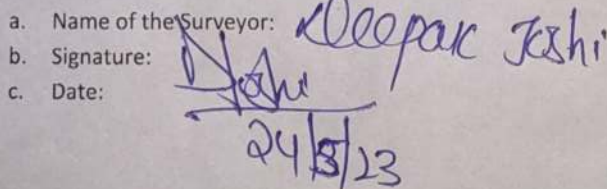 a. Name of the Surveyor: Deepak Joshi
b. Signature: Joshi
c. Date:
24/8/23